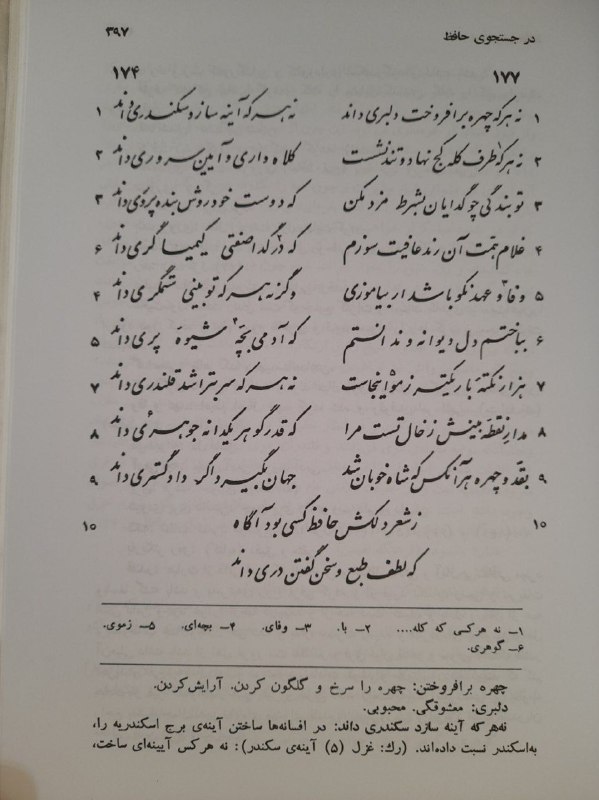 در جستجوی حافظ ۳۹۷
۱۷۷ ۱۷۴
۱ نه هر که چهره برافروخت دلبری داند نه هر که آینه سازد سکندری داند ۱
۲ نه هر که طرف کله کج نهاد و تند نشست کلاه داری و آیین سروری داند ۲
۳ تو بندگی چو گدایان بشرط مزد مکن که دوست خود روش بنده پروری داند ۳
۴ غلام همت آن رند عافیت سوزم که در گدا صفتی کیمیاگری داند ۶
۵ وفا و عهد نکو باشد ار بیاموزی وگرنه هر که تو بینی ستمگری داند ۴
۶ بباختم دل دیوانه و ندانستم که آدمی بچهٔ شیوهٔ پری داند ۵
۷ هزار نکتهٔ باریکتر ز مو اینجاست نه هر که سر بتراشد قلندری داند ۷
۸ مدار نقطهٔ بینش ز خال تست مرا که قدر گوهر یکدانه جوهری داند ۸
۹ بقد و چهره هر آنکس که شاه خوبان شد جهان بگیرد اگر دادگستری داند ۹
۱۰ ز شعر دلکش حافظ کسی بود آگاه ۱۰
که لطف طبع و سخن گفتن دری داند
۱ــ نه هر کسی که کله.... ۲ــ با. ۳ــ وفای. ۴ــ بچه‌ای. ۵ــ زموی.
۶ــ گوهری.
چهره برافروختن: چهره را سرخ و گلگون کردن. آرایش کردن.
دلبری: معشوقگی. محبوبی.
نه‌هر که آینه سازد سکندری داند: در افسانه‌ها ساختن آینه‌ی برج اسکندریه را،
به‌اسکندر نسبت داده‌اند. (رك: غزل (۵) آینه‌ی سکندر): نه هرکس آیینه‌ای ساخت،